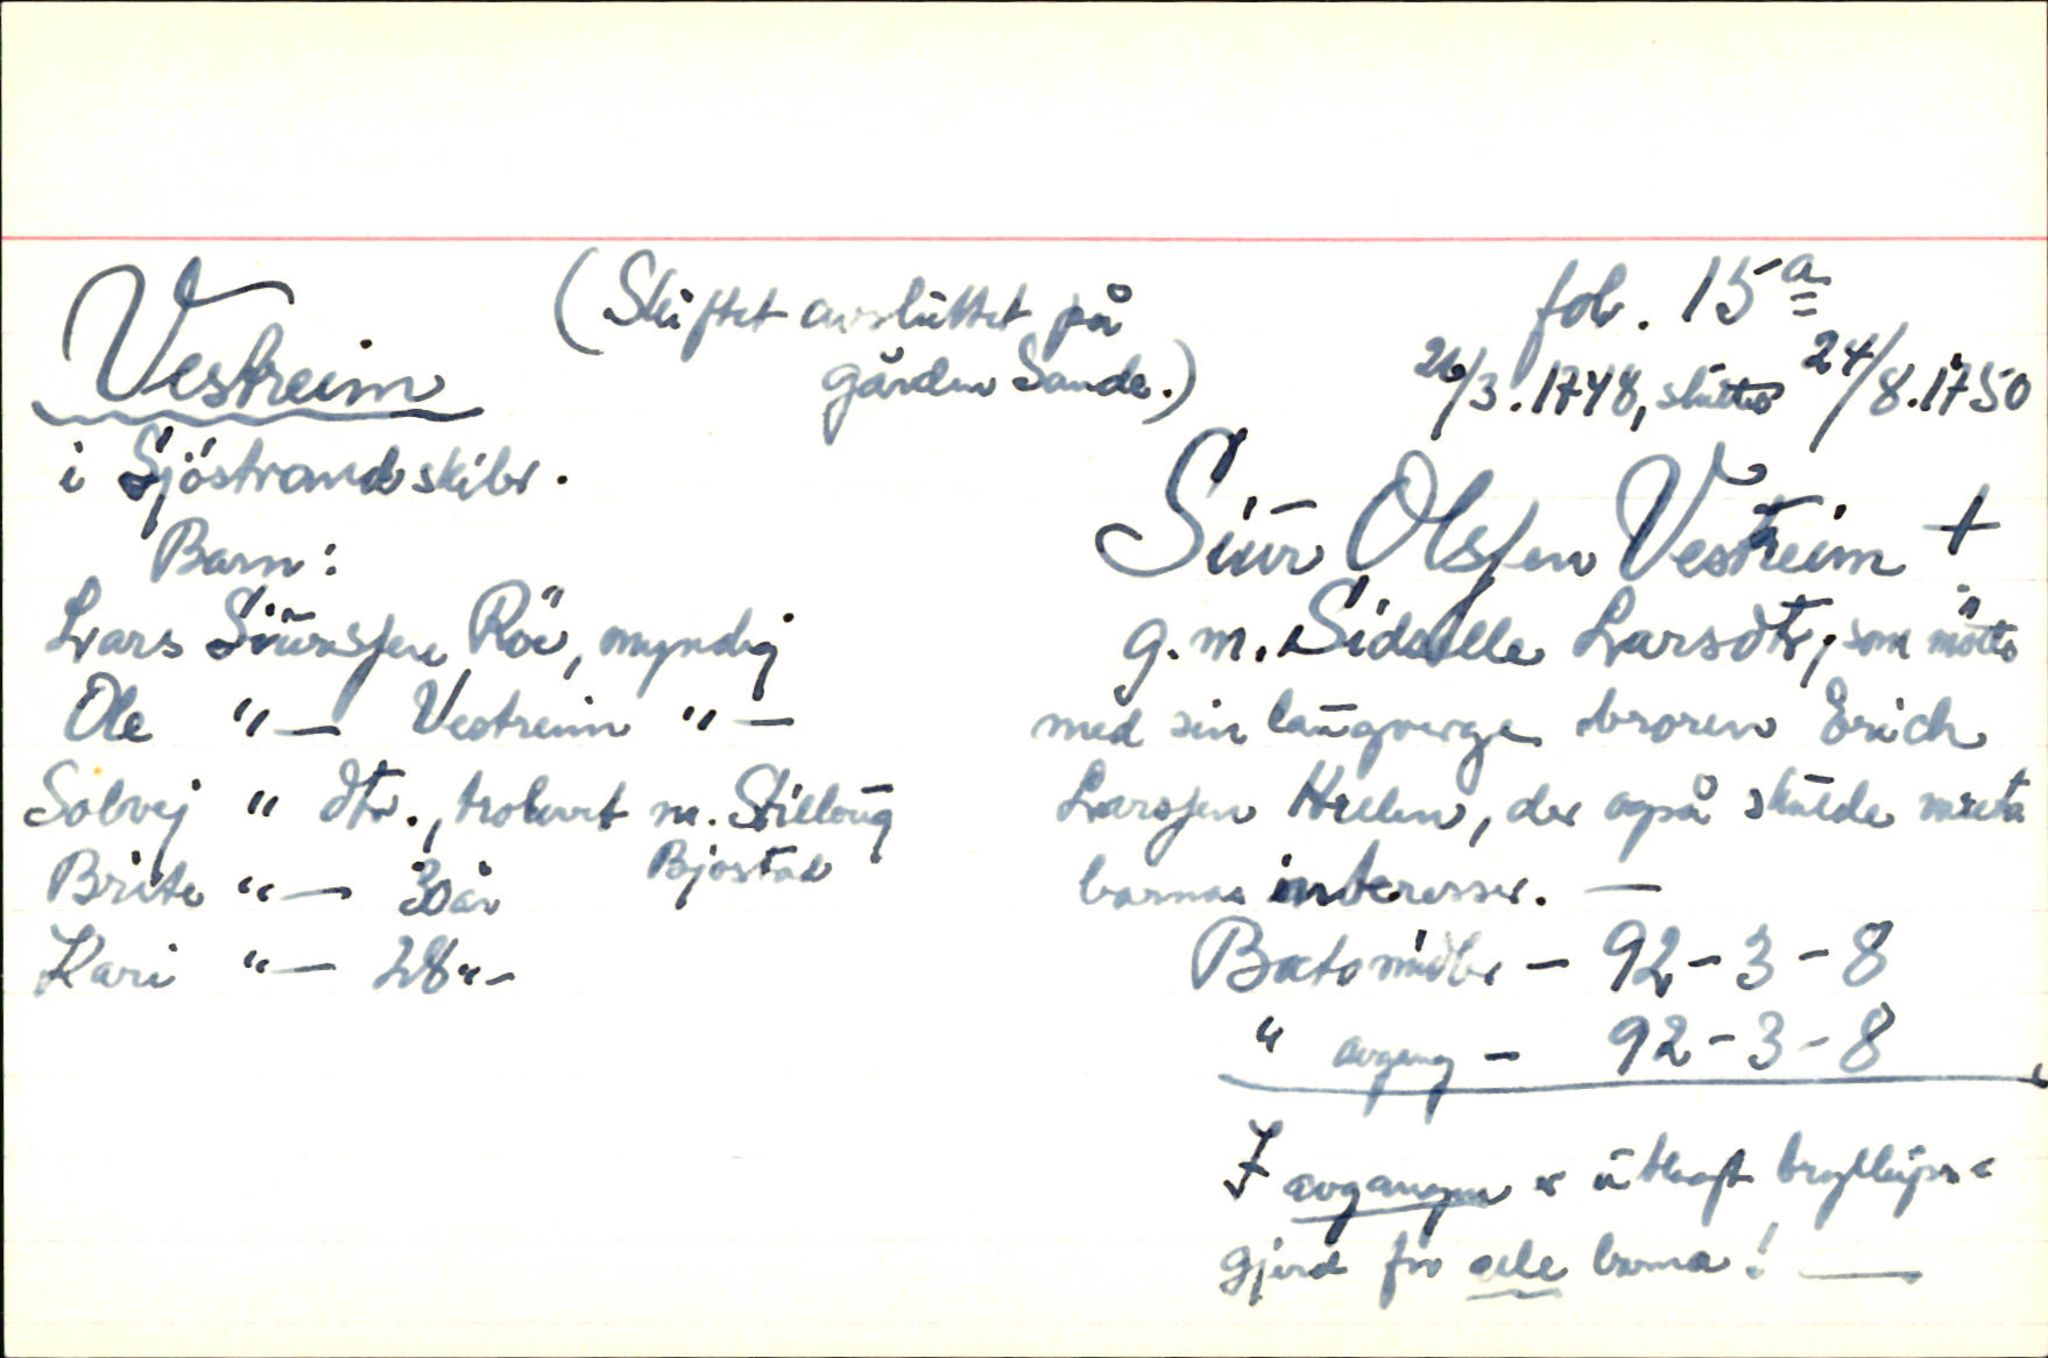 Vestreim
i Sjöstrand skibr.
(Skiftet avsluttet på
gården Sande.)
fol. 15a
26/3.1748, slutter 24/8.1750
Barn:
Lars Siurssen Röe, myndig
Ole "— Vestreim "—
Solvej " dtr., trolovet m. Stillaug
Bjostad
Brite "— 30 år
Kari "— 28 "-
Siur Olssen Vestreim +
g.m. Sidselle Larsdtr, som mötte
med sin laugverge broren Erich
Larssen Hrellen, der også skulde vareta
barnas interesser. —
Bretto midler – 92 – 3 – 8
" avgang – 92 – 3 – 8
I avgangen er utlagt bryllups-
gjerd for alle barna! —